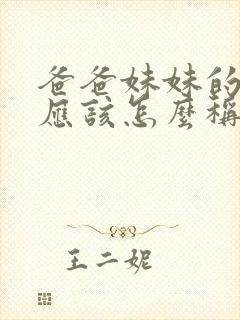 爸爸妹妹的
應該怎麼稱
王二妮